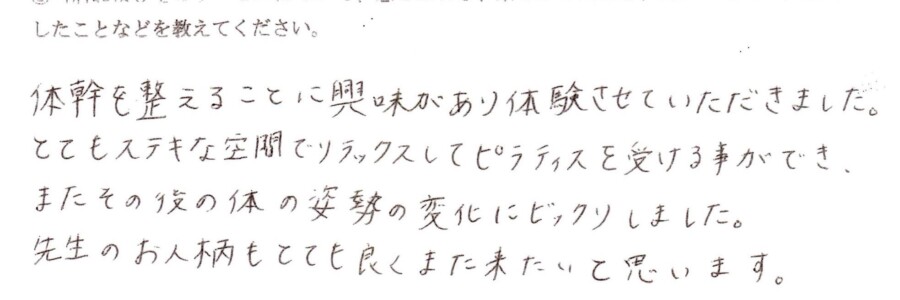 したことなどを教えてください。
体幹を整えることに興味があり体験させていただきました。
とてもステキな空間でリラックスしてピラティスを受ける事ができ、
またその後の体の姿勢の変化にビックリしました。
先生のお人柄もとても良くまた来たいと思います。